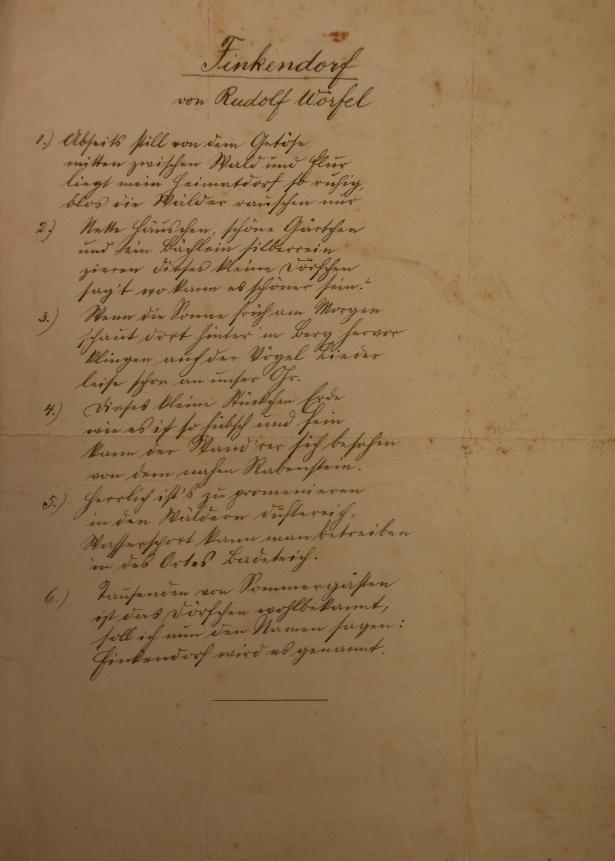 Finkendorf
von Rudolf Wörfel
1.) Abseits still von dem Getöse
mitten zwischen Wald und Flur
liegt mein Heimatdorf so ruhig,
blos die Wälder rauschen nur
2.) Nette Häuschen, schöne Gärtchen
und ein Bächlein silberrein
zieren dieses kleine Dörfchen
sag't wo kann es schöner sein.
3.) Wenn die Sonne früh am Morgen
schaut dort hinter'm Berg hervor
klingen auf der Vögel Lieder
leise schon an unser Ohr.
4.) Dieses kleine Stückchen Erde
wie es ist so hübsch und fein
kann der Wand'rer sich besehen
von dem nahen Rabenstein.
5.) Herrlich ist's zu promenieren
in den Wäldern düftereich,
Wassersport kann man betreiben
in des Ortes Badeteich.
6.) Tausenden von Sommergästen
ist das Dörfchen wohlbekannt,
soll ich nun den Namen sagen:
Finkendorf wird es genannt.